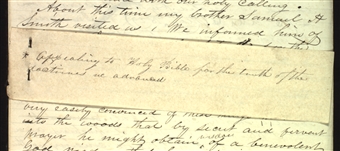 with our holy calling.
About this time my Brother Samuel, H
Smith visited us, We informed him of
Appealing to Holy Bible for the truth of the
doctrines we advanced
very easily convinced of
into the woods that by secret and fervent
prayer he might obtain, of a benevolent
God